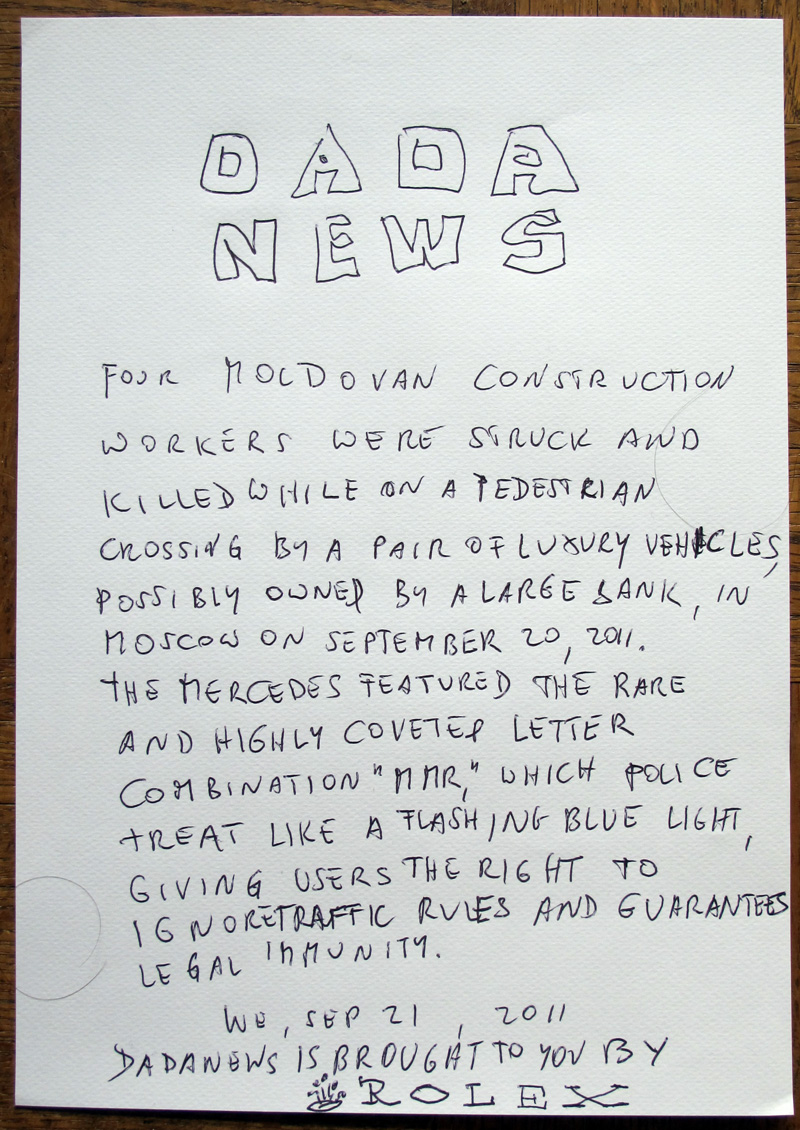 DADA
NEWS
FOUR MOLDOVAN CONSTRUCTION
WORKERS WERE STRUCK AND
KILLED WHILE ON A PEDESTRIAN
CROSSING BY A PAIR OF LUXURY VEHICLES,
POSSIBLY OWNED BY A LARGE BANK, IN
MOSCOW ON SEPTEMBER 20, 2011.
THE MERCEDES FEATURED THE RARE
AND HIGHLY COVETED LETTER
COMBINATION "MMR," WHICH POLICE
TREAT LIKE A FLASHING BLUE LIGHT,
GIVING USERS THE RIGHT TO
IGNORE TRAFFIC RULES AND GUARANTEES
LEGAL IMMUNITY.
WE, SEP 21, 2011
DADANEWS IS BROUGHT TO YOU BY
ROLEX